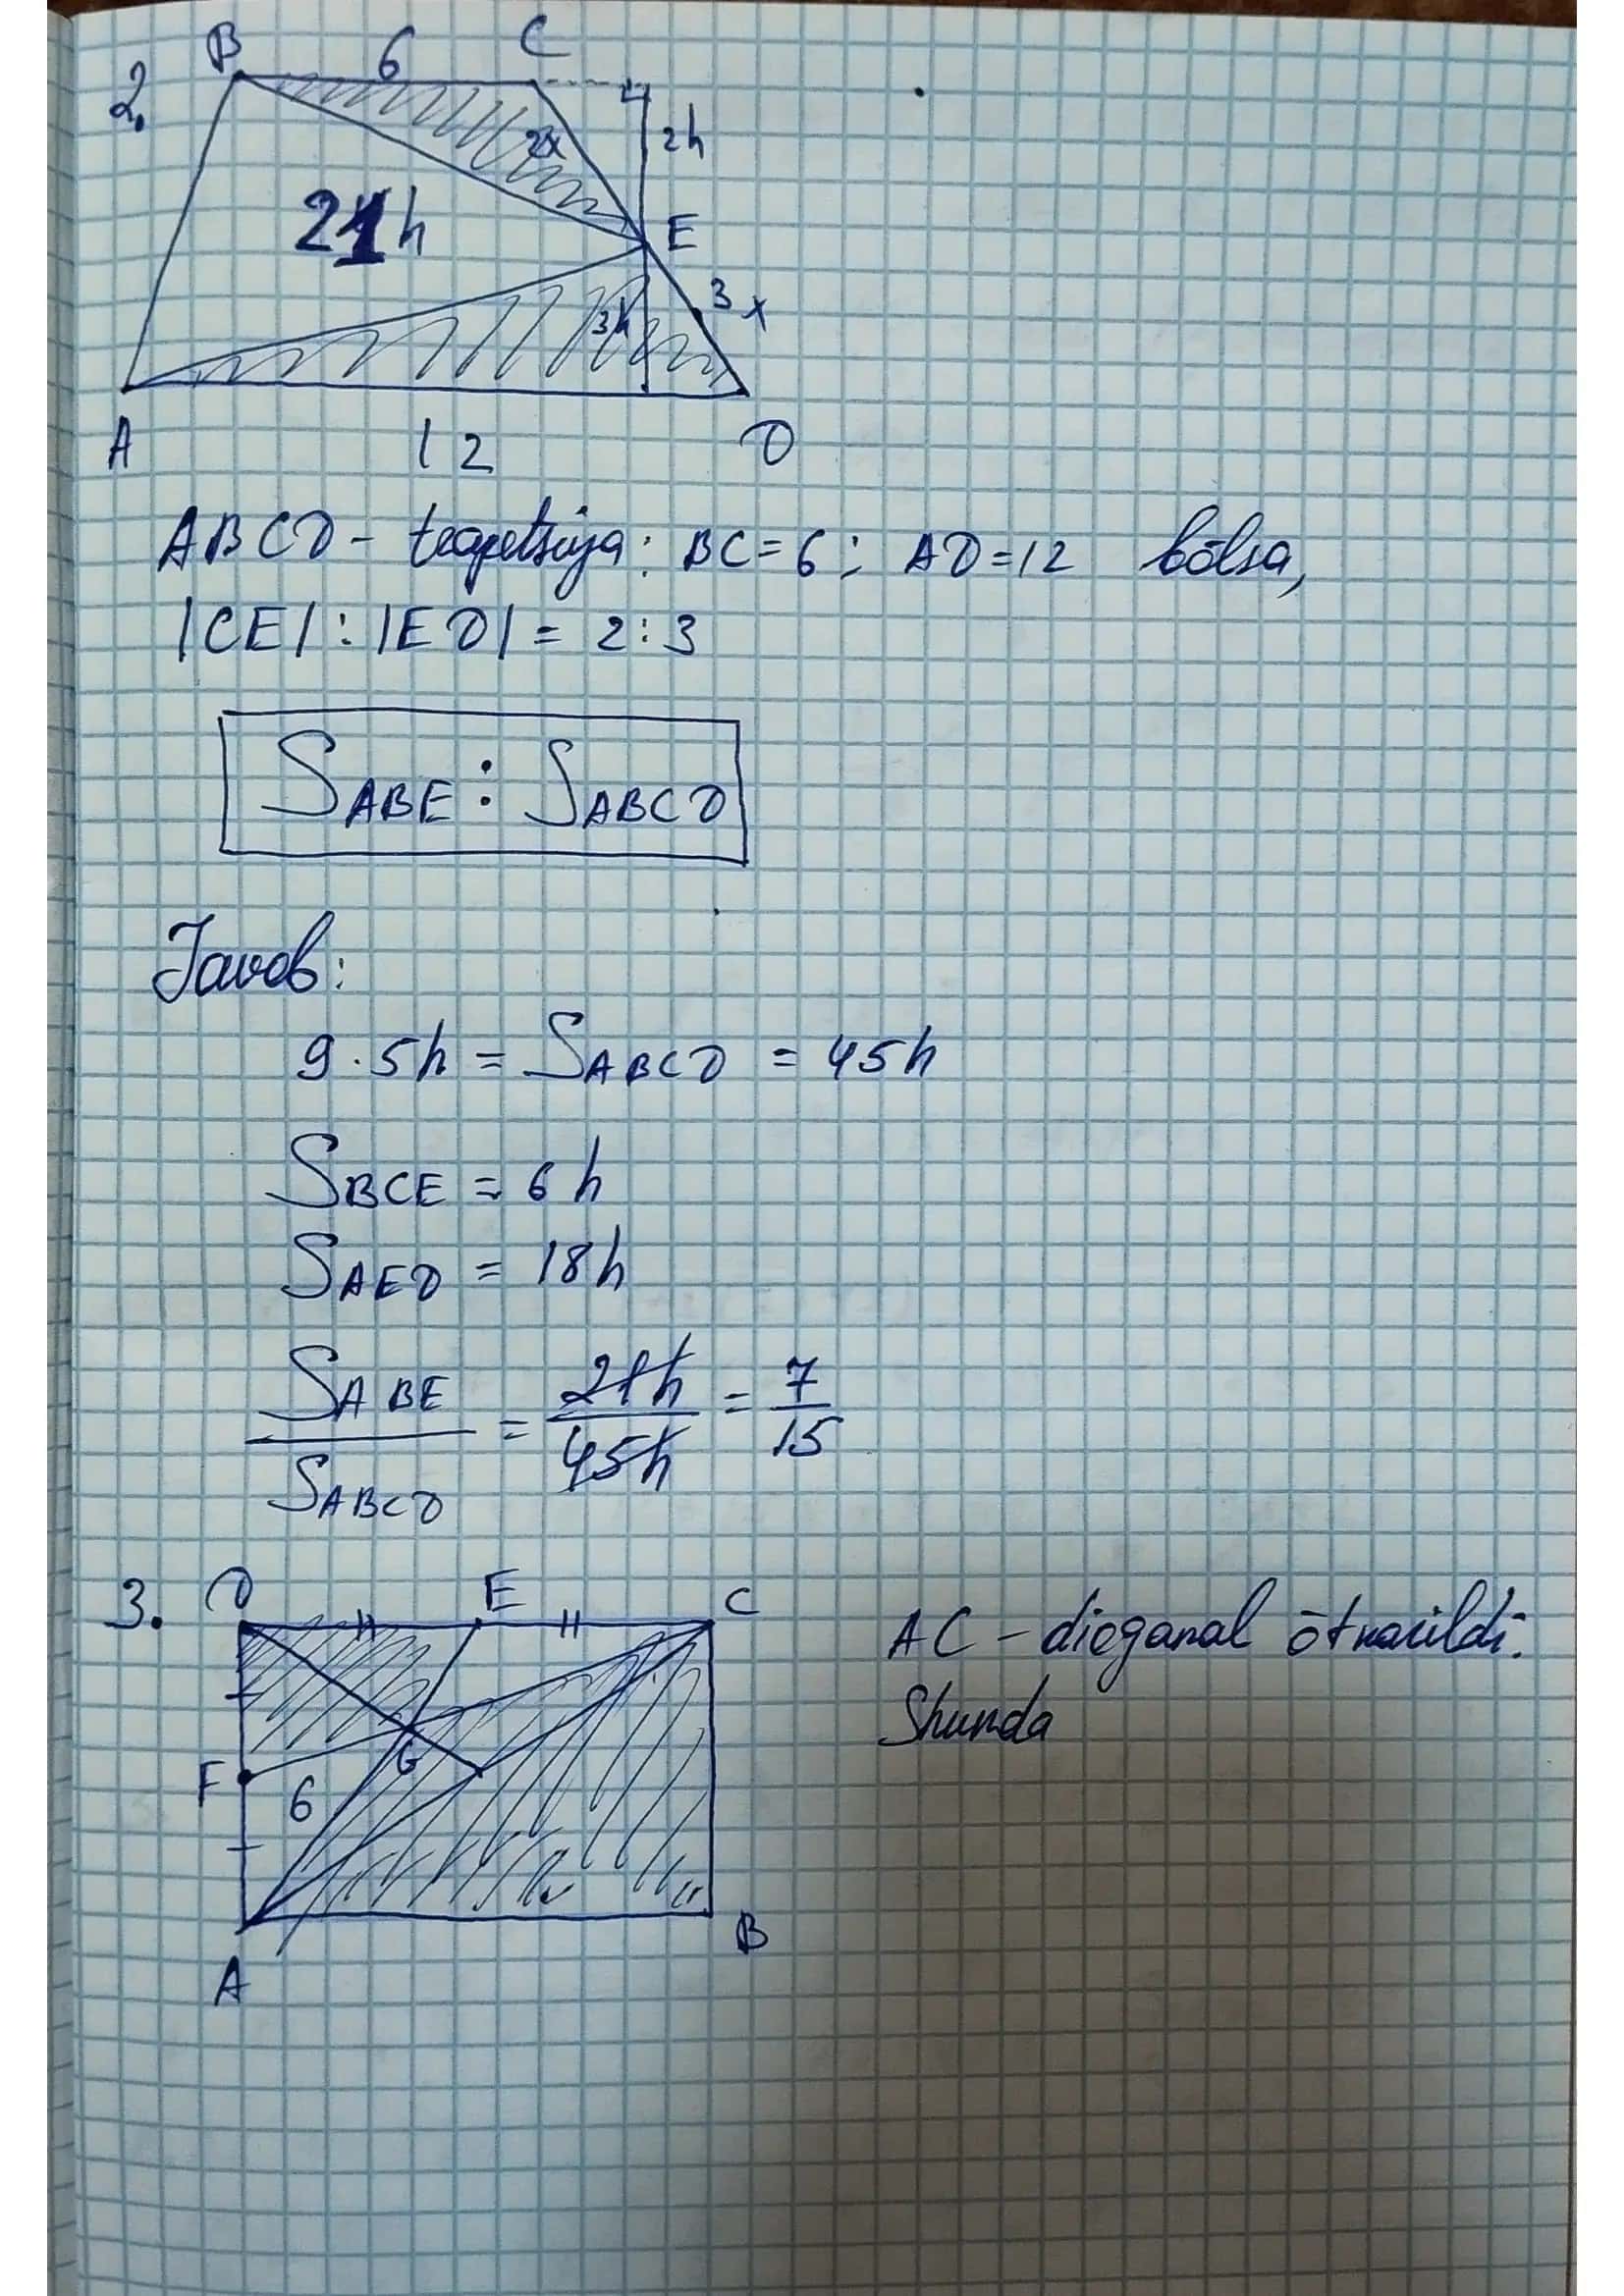 2.
B 6 C
2x 2h
21h
E
3h 3x
A 12 D
ABCD - trapetsiya; BC=6; AD=12 bõlsa,
|CE| : |ED| = 2:3
SABE : SABCD
Javob:
9·5h = SABCD = 45h
SBCE = 6h
SAED = 18h
SABE / SABCD = 21h / 45h = 7/15
3. D E C
AC - dioganal õtkazildi.
Shunda
F 6 G
B
A